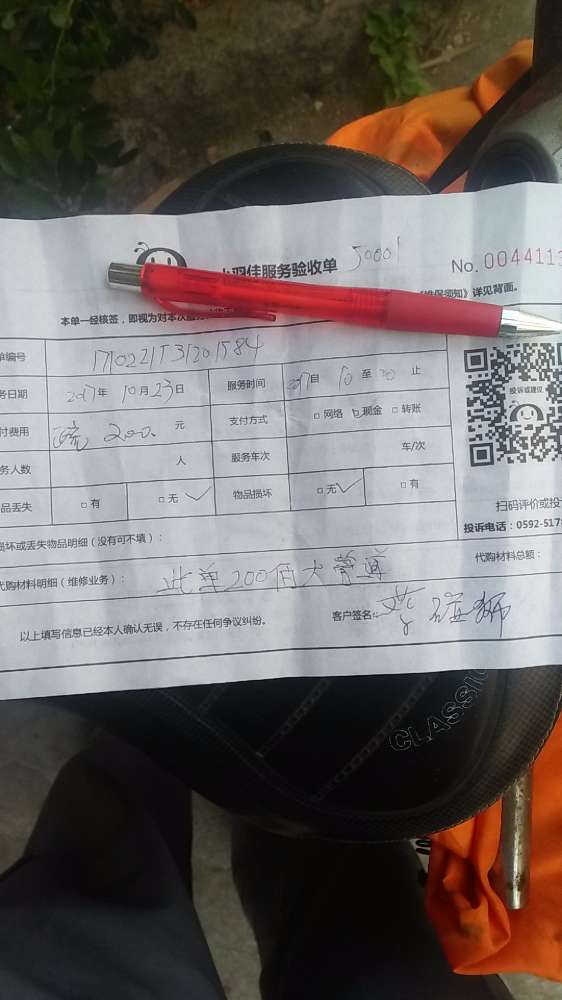 小羽佳服务验收单 50001
No. 0044113
本单一经核签，即视为对本次服务
《维保须知》详见背面。
单编号 1710221531201584
务日期 2017年 10月23日 服务时间 自 10 至 止
付费用 200. 元 支付方式 □网络 ☑现金 □转账
务人数 人 服务车次 车/次
品丢失 □有 □无✓ 物品损坏 □无✓ □有
投诉或建议
扫码评价或投
投诉电话：0592-517
损坏或丢失物品明细（没有可不填）：
代购材料明细（维修业务）： 此单200
代购材料总额：
以上填写信息已经本人确认无误，不存在任何争议纠纷。
客户签名：
CLASSIC